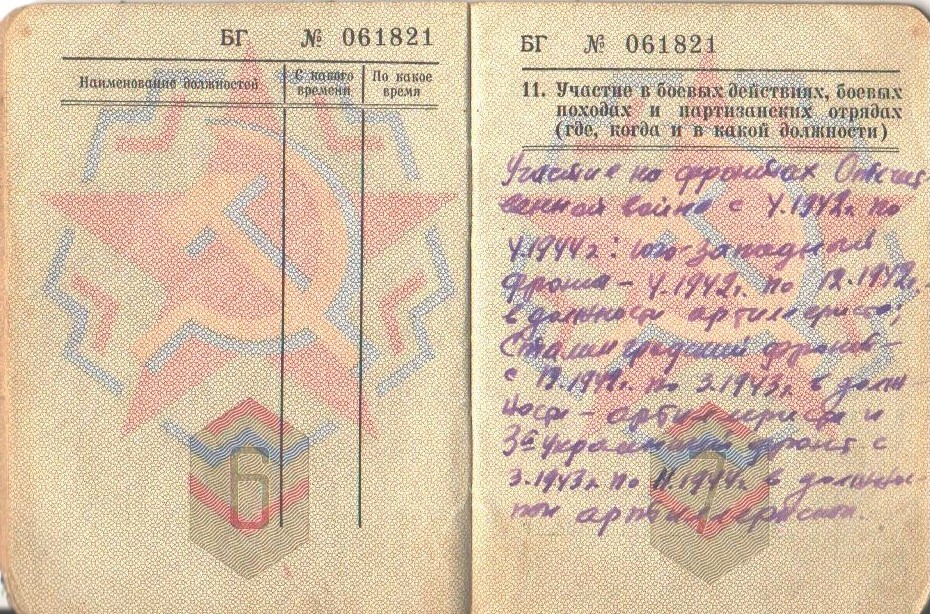 БГ № 061821
Наименование должностей
С какого времени
По какое время
6
БГ № 061821
11. Участие в боевых действиях, боевых
походах и партизанских отрядах
(где, когда и в какой должности)
Участие на фронтах Отечест-
венной войны с 4.1942г. по
4.1944г: юго-западный
фронт - 4.1942г. по 12.1942г.-
в должности артиллериста;
Сталинградский фронт -
с 12.1942г. по 3.1943г. в долж-
ности - артиллериста и
3й Украинский фронт с
3.1943г. по 11.1944г. в
артиллериста.
7